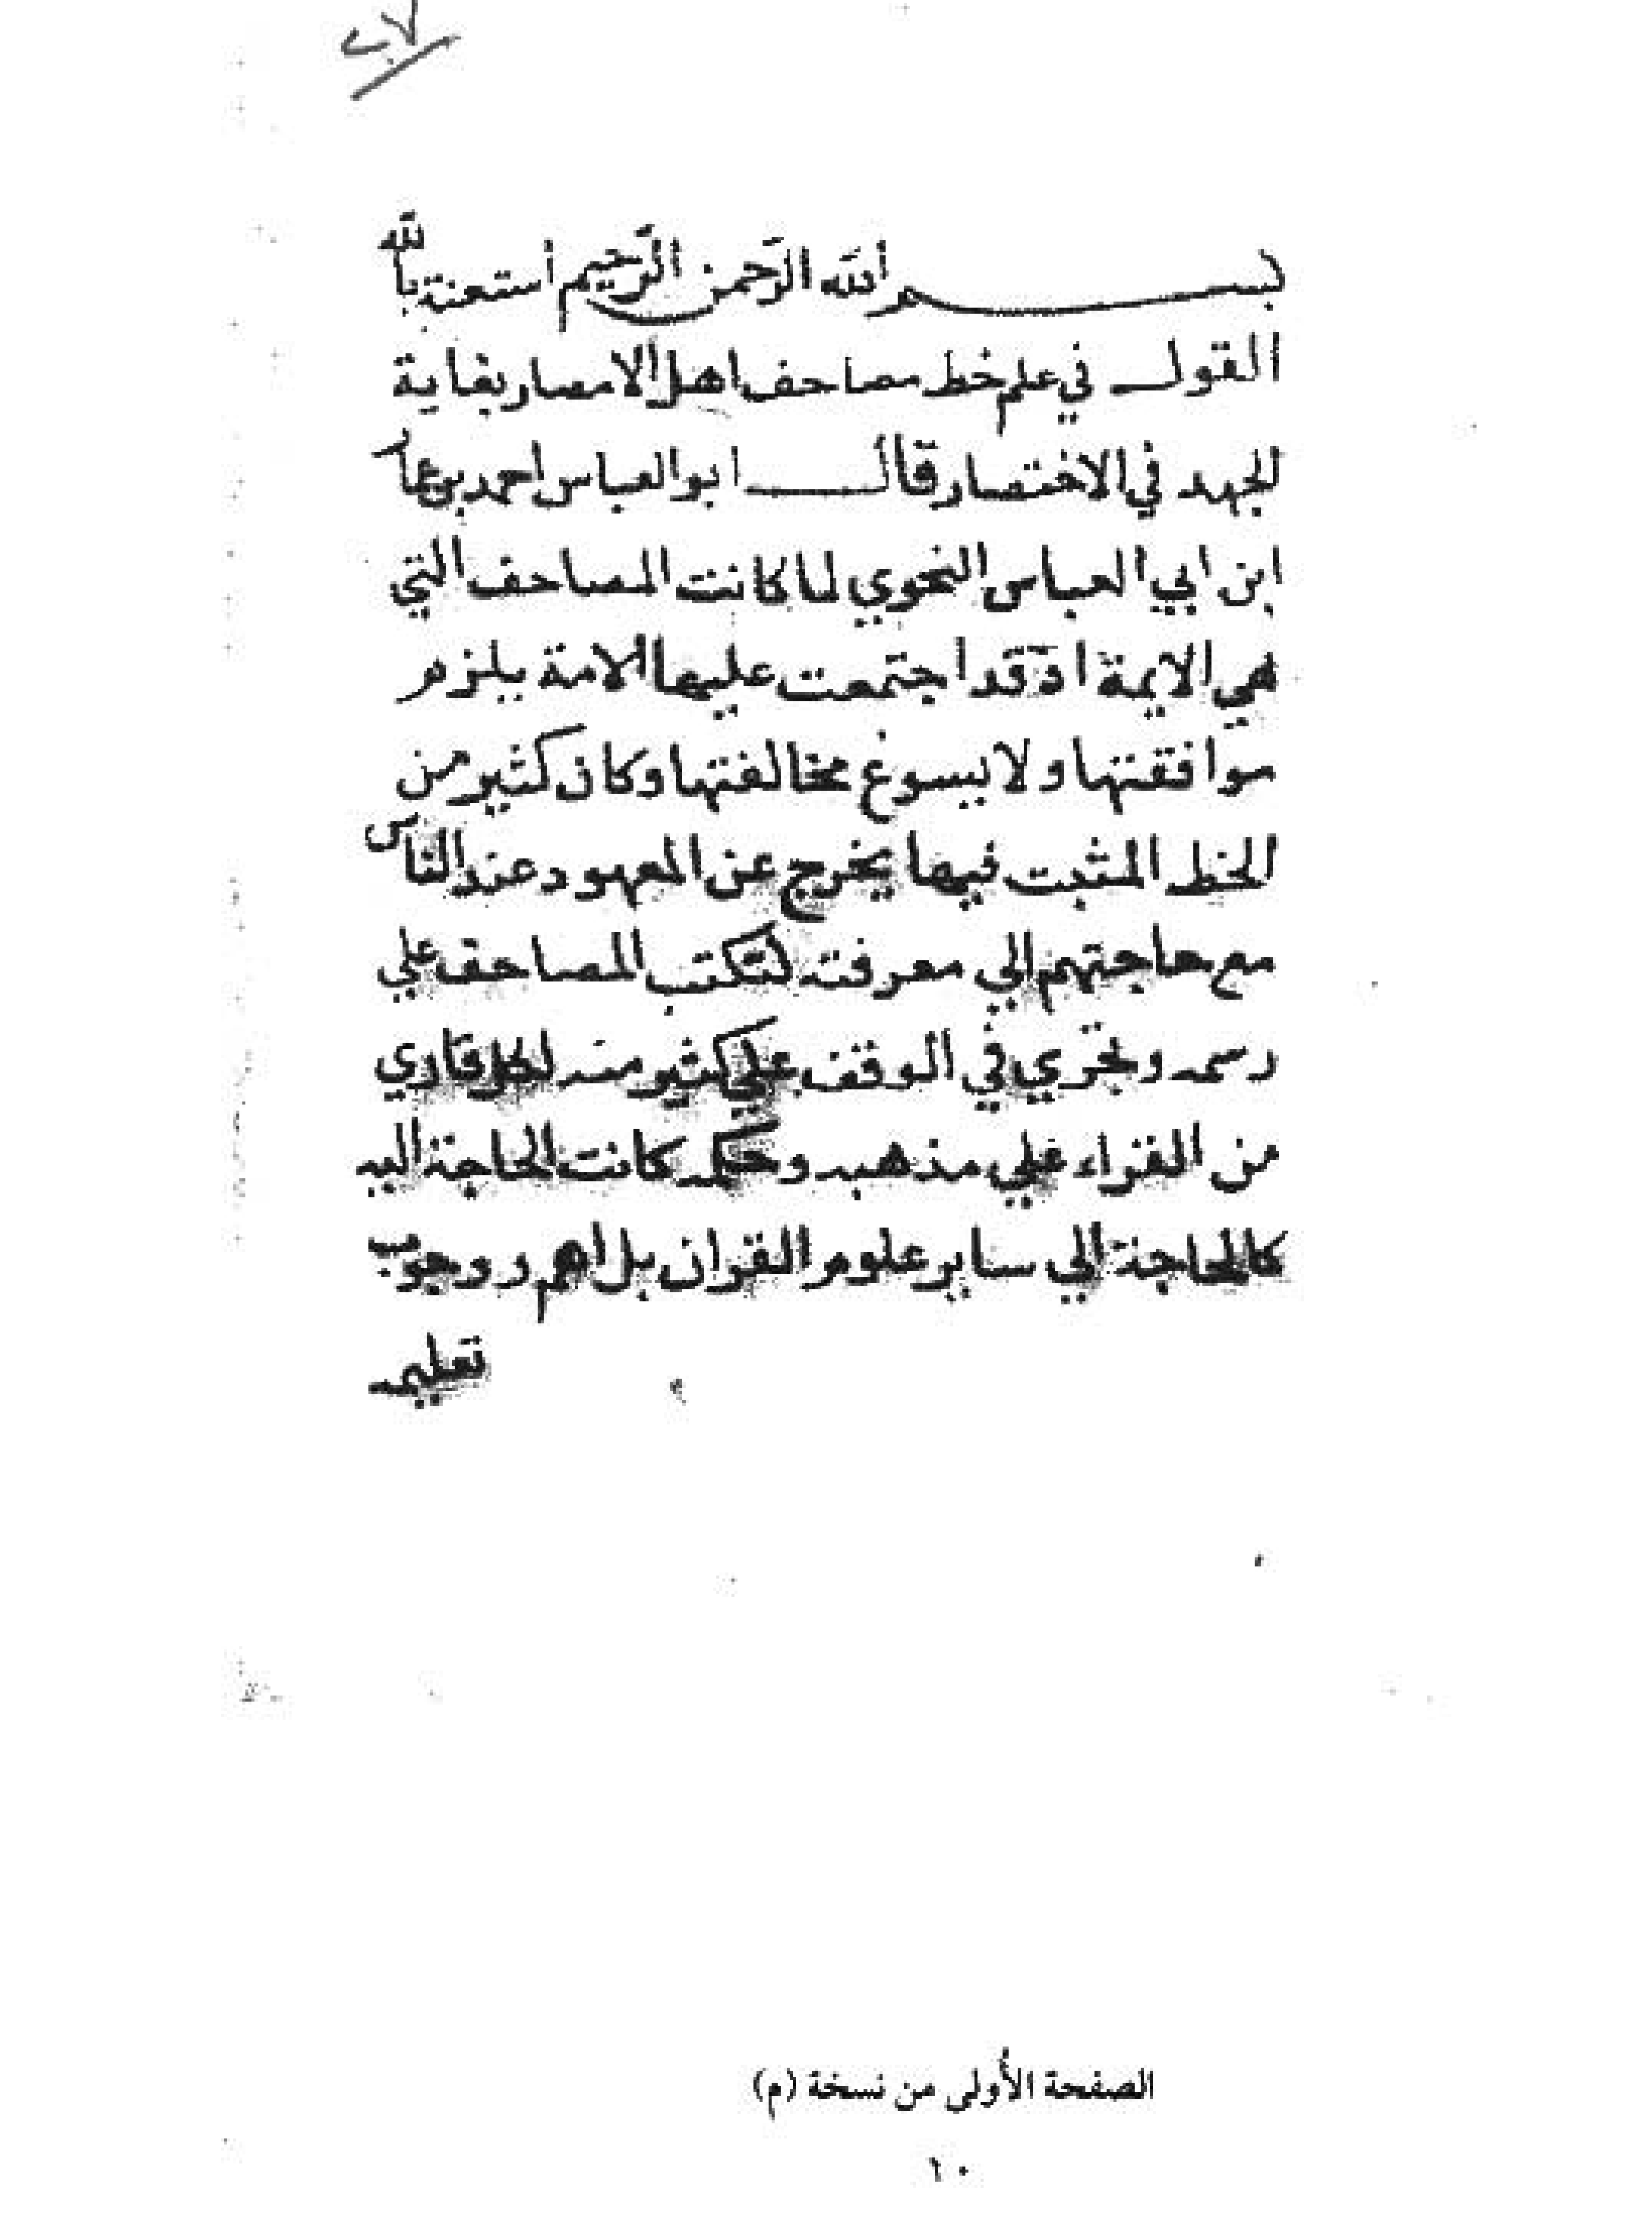 ٢٧
بسم الله الرحمن الرحيم استعنة بالله
القول في علم خط مصاحف اهل الامصار بغاية
الجهد في الاختصار قال ابو العباس احمد بن عما
ابن ابي العباس النحوي لما كانت المصاحف التي
هي الايمة اذ قد اجتمعت عليها الامة يلزم
موافقتها ولا يسوغ مخالفتها وكان كثير من
الخط المثبت فيها يخرج عن المعهود عند الناس
مع حاجتهم الي معرفته لتكتب المصاحف علي
رسمه وتجري في الوقف علي كثير منه لكل قاري
من القراء علي مذهبه وحكمه كانت الحاجة اليه
كالحاجة الي ساير علوم القران بل اهم و وجوب
تعليمه
الصفحة الأولى من نسخة (م)
١٠